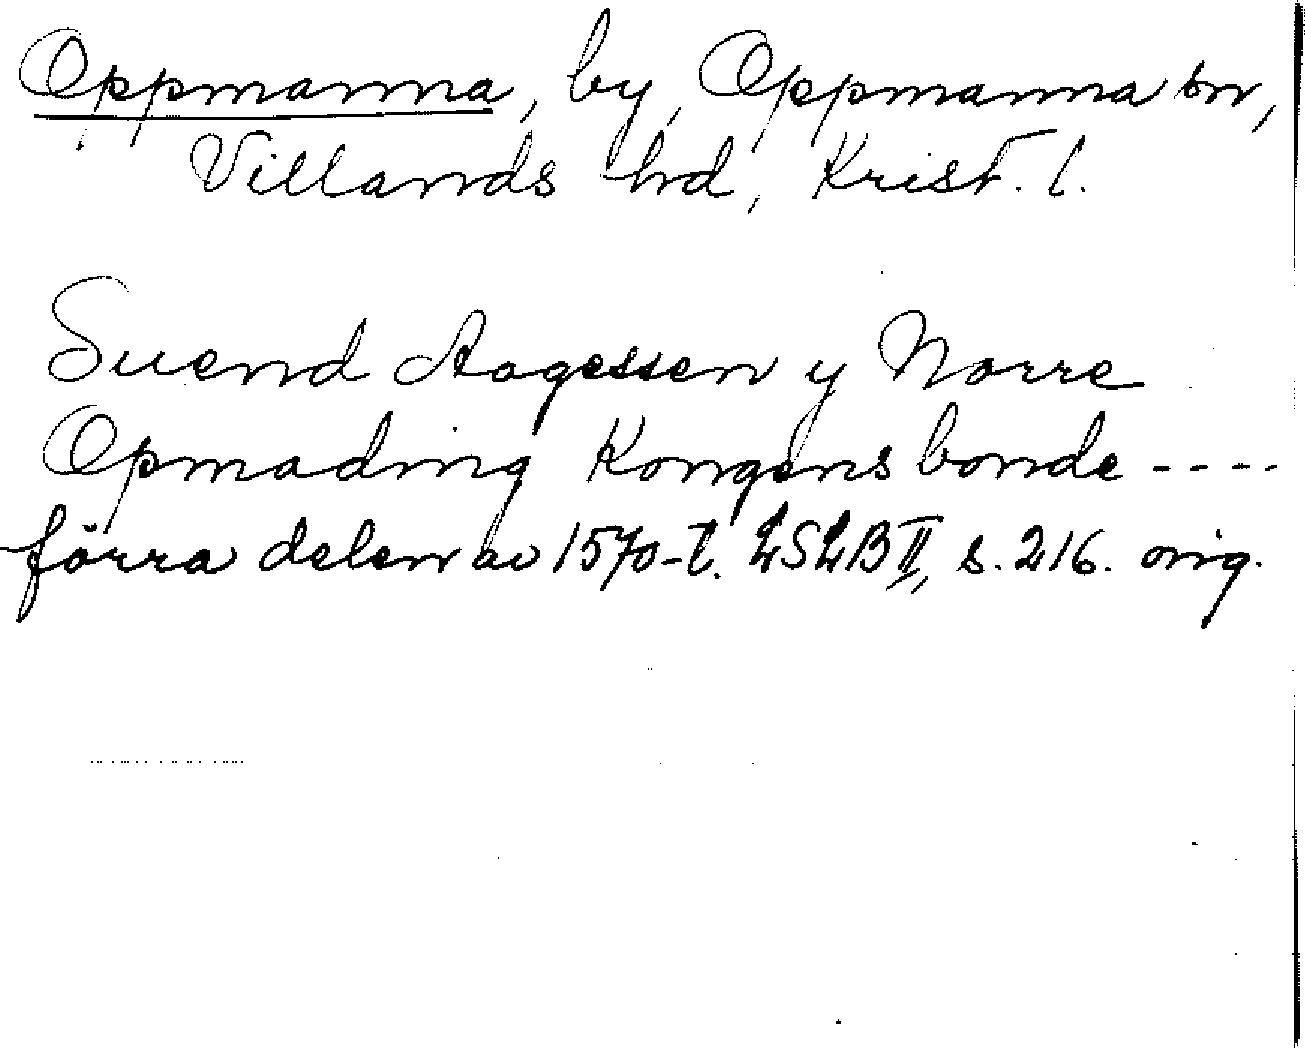 Oppmanna, by, Oppmanna sn,
Villands hd, Krist. l.
Suend Aagessen y Norre
Opmading Kongens bonde ----
förra delen av 1570-t. LSLB II, s. 216. orig.